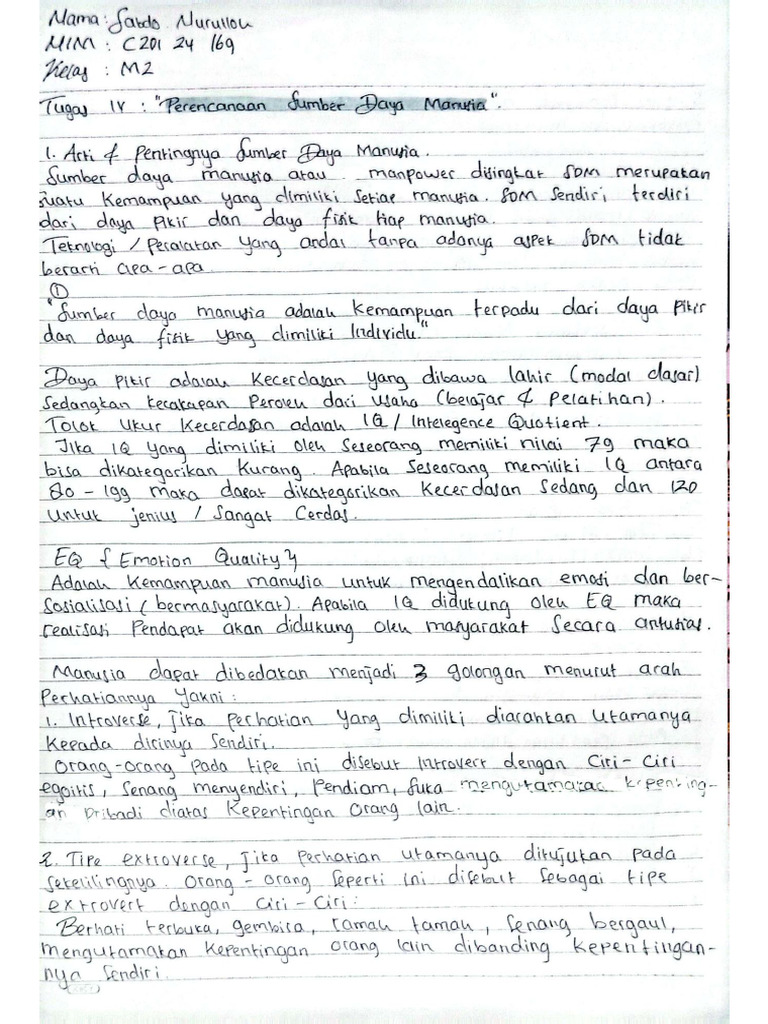 Nama : Sardo Nurullou
NIM : C201 24 169
Kelas : M2
Tugas IV : "Perencanaan Sumber Daya Manusia".
1. Arti & Pentingnya Sumber Daya Manusia.
Sumber daya manusia atau manpower disingkat SDM merupakan
suatu kemampuan yang dimiliki setiap manusia. SDM sendiri terdiri
dari daya pikir dan daya fisik tiap manusia.
Teknologi / Peralatan yang andal tanpa adanya aspek SDM tidak
berarti apa-apa.
①
"Sumber daya manusia adalah kemampuan terpadu dari daya pikir
dan daya fisik yang dimiliki Individu."
Daya pikir adalah kecerdasan yang dibawa lahir (modal dasar)
sedangkan kecakapan Peroleh dari usaha (belajar & Pelatihan).
Tolok Ukur Kecerdasan adalah IQ / Intelegence Quotient.
Jika IQ yang dimiliki oleh seseorang memiliki nilai 79 maka
bisa dikategorikan Kurang. Apabila Seseorang memiliki IQ antara
80 - 199 maka dapat dikategorikan kecerdasan Sedang dan 120
untuk jenius / Sangat Cerdas.
EQ { Emotion Quality }
Adalah kemampuan manusia untuk mengendalikan emosi dan ber-
sosialisasi (bermasyarakat). Apabila IQ didukung oleh EQ maka
realisasi Pendapat akan didukung oleh masyarakat secara antusias.
Manusia dapat dibedakan menjadi 3 golongan menurut arah
Perhatiannya yakni :
1. Introverse, jika perhatian yang dimiliki diarahkan utamanya
kepada dirinya sendiri.
Orang-orang pada tipe ini disebut Introvert dengan Ciri-Ciri
egoitis, Senang menyendiri, Pendiam, suka mengutamakan kepenting-
an Pribadi diatas Kepentingan Orang lain.
2. Tipe extroverse, jika perhatian utamanya ditujukan pada
sekelilingnya. Orang-orang seperti ini disebut sebagai tipe
extrovert dengan Ciri-Ciri:
Berhati terbuka, gembira, ramah tamah, senang bergaul,
mengutamakan kepentingan orang lain dibanding kepentingan-
nya sendiri.